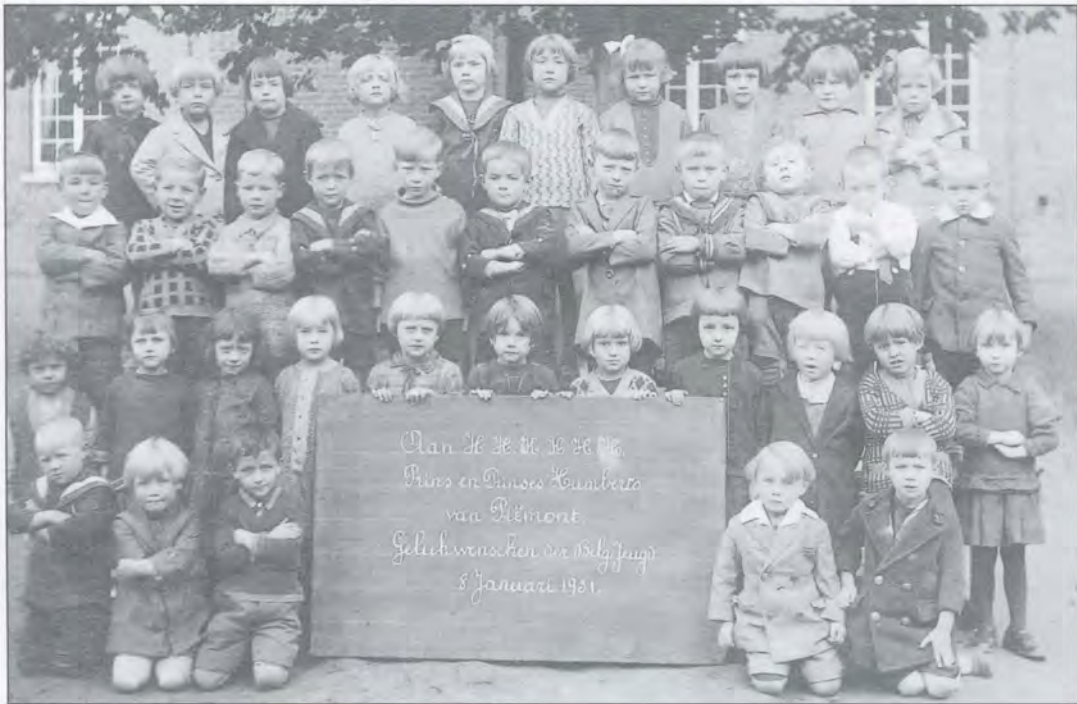 Aan H.H.K.K.H.H.
Prins en Prinses Humberto
van Piëmont.
Gelukwenschen der Belg. Jeugd
8 Januari 1931.